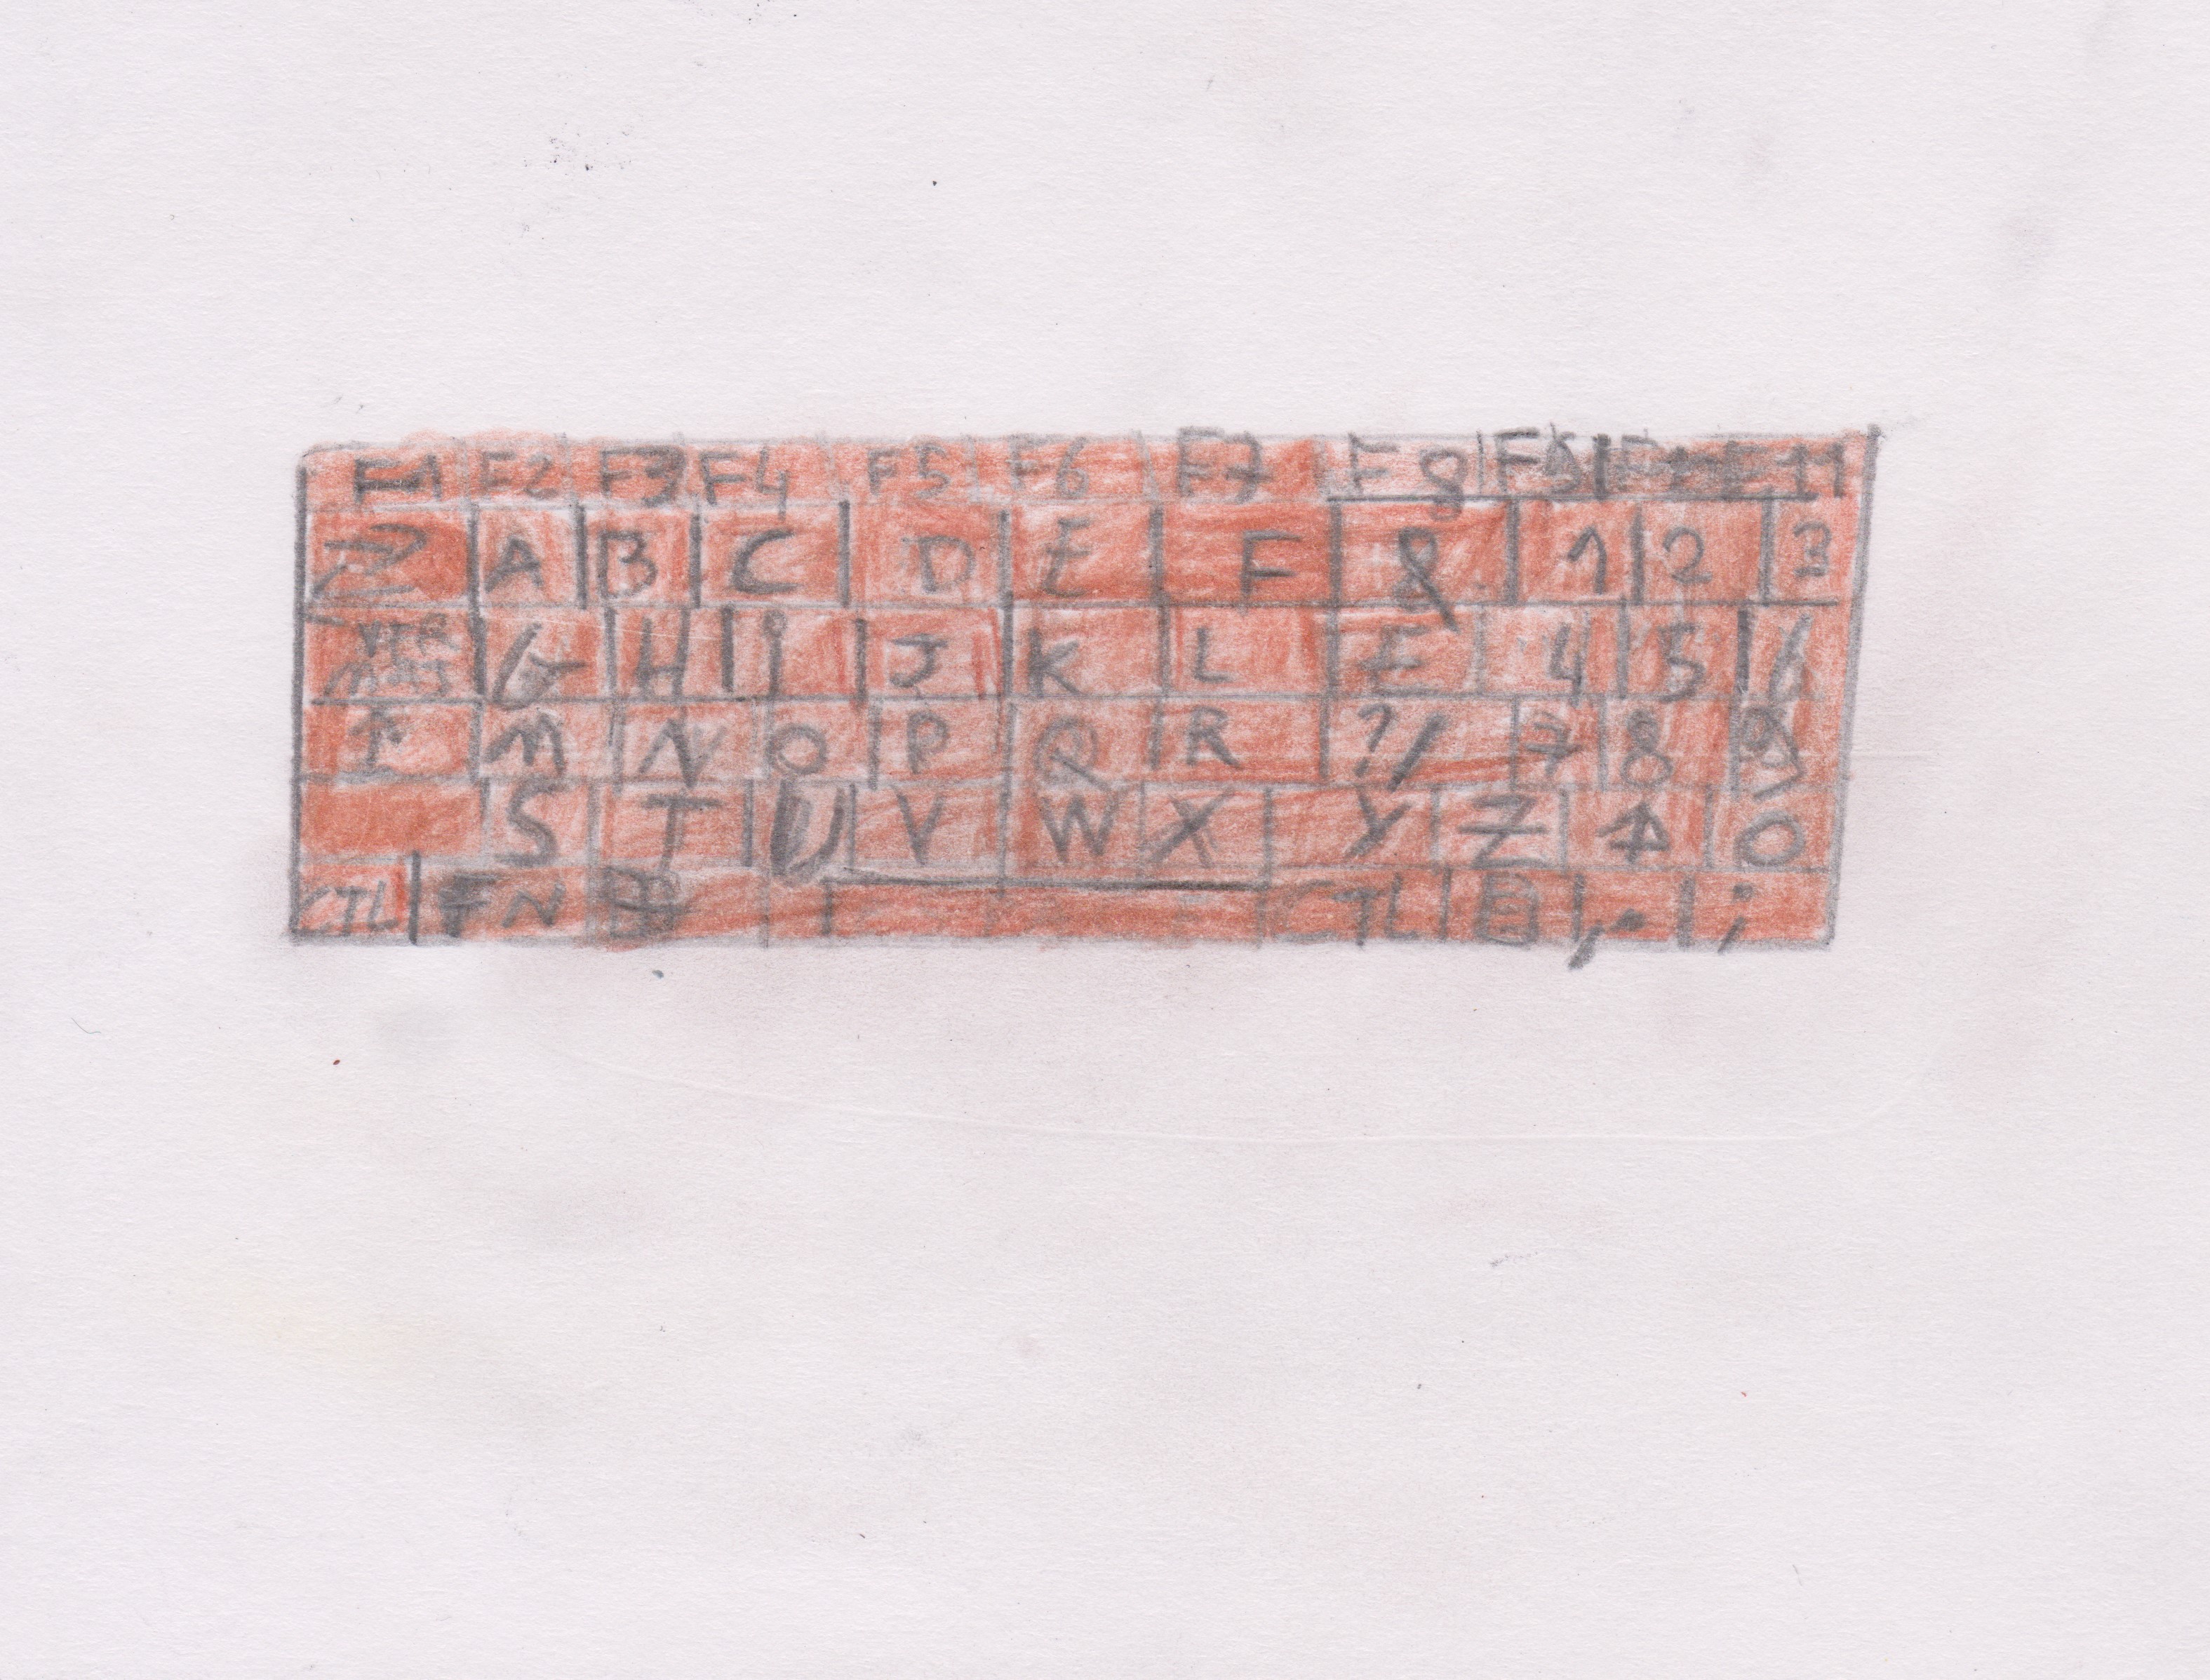 F1 F2 F3 F4 F5 F6 F7 F8 F9 F11
A B C D E F & 1 2 3
G H I J K L £ 4 5 6
↑ M N O P Q R ?/ 7 8 9
S T U V W X Y Z ↑ 0
CTL FN CTL ,. ;